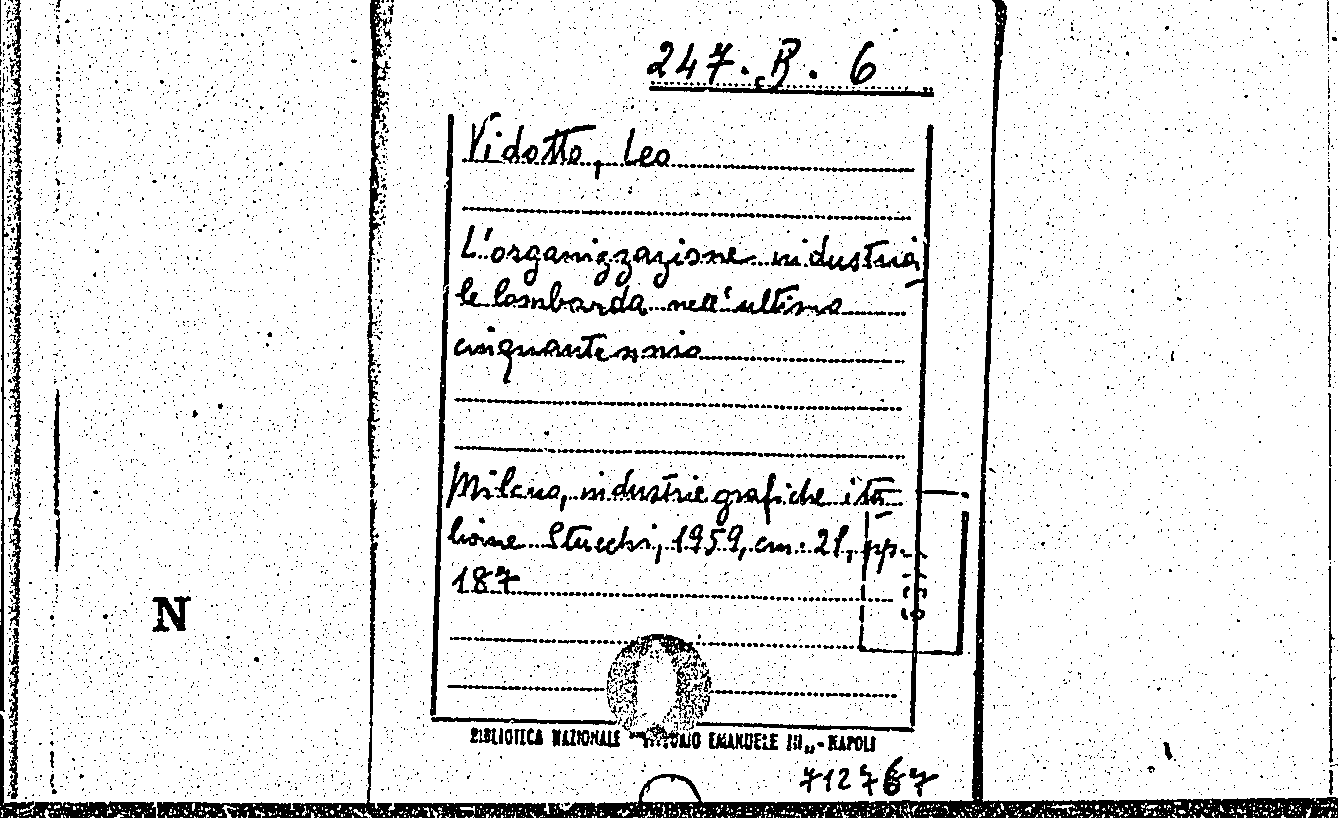 247.B.6
Vidotto, Leo
L'organizzazione industria
le lombarda nell'ultimo
cinquantennio
Milano, industrie grafiche ita
liane Stucchi, 1959, cm. 21, pp.
187
N
BIBLIOTECA NAZIONALE "VITTORIO EMANUELE III„ - NAPOLI
712767